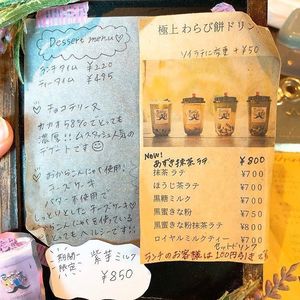 Dessert menu♡
ランチタイム ¥220
ティータイム ¥495
・チョコテリーヌ
カカオ58%でとっても
濃厚!!ムスタッシュ人気の
デザートです☺
・おからこんにゃく使用!
チーズケーキ
バター不使用で
しっとりとしたチーズケーキ♡
おからこんにゃくを使っている
のでとってもヘルシーです!!
期間
限定
紫芋ミルク
¥850
極上わらび餅ドリンク
ソイラテに変更 +¥50
New!
あずき抹茶ラテ ¥800
抹茶ラテ ¥700
ほうじ茶ラテ ¥700
黒糖ミルク ¥700
黒蜜きな粉 ¥750
黒蜜きな粉抹茶ラテ ¥750
ロイヤルミルクティー ¥700
セットドリンク
ランチのお客様は100円引きです